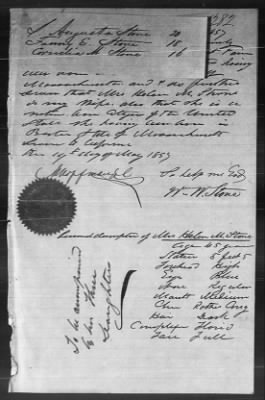 282
S. Augusta Stone 20
Fanny E. Stone 18
Cornelia M. Stone 16
Massachusetts and I do further
swear that Mrs Helen M. Stone
is my Wife also that she is a
native born Citizen of the United
States she having been born in
Boston State of Massachusetts
Sworn before me
this 19th day of May 1857
So help me God
Wm W. Stone
Personal description of Mrs Helen M. Stone
Age 45 years
Stature 5 feet 5
Forehead High
Eyes Blue
Nose Regular
Mouth Medium
Chin Rather long
Hair Dark
Complexion Florid
Face Full
To be accompanied
by her three
daughters